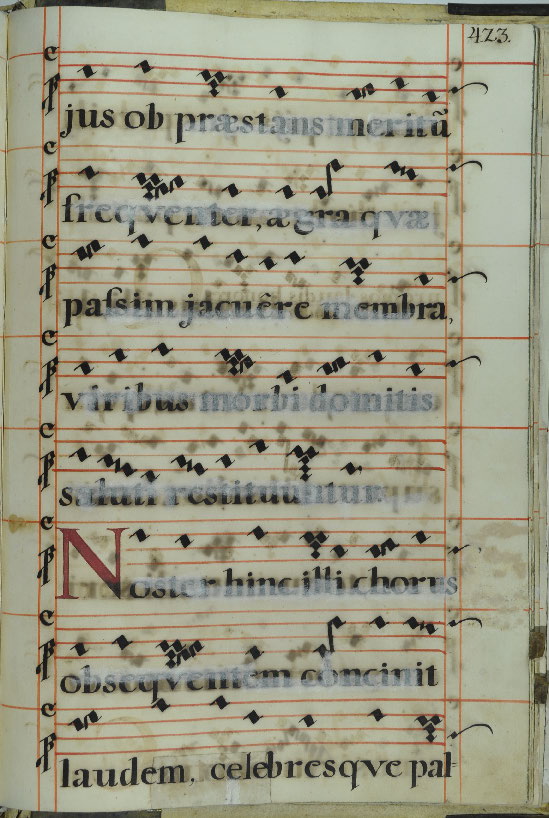 423.
jus ob præstans meritū
frequenter, ægra quæ
paſsim jacuêre membra,
viribus morbi domitis
saluti restituuntur.
Noster hinc illi chorus
obsequentem concinit
laudem, celebresqve pal-